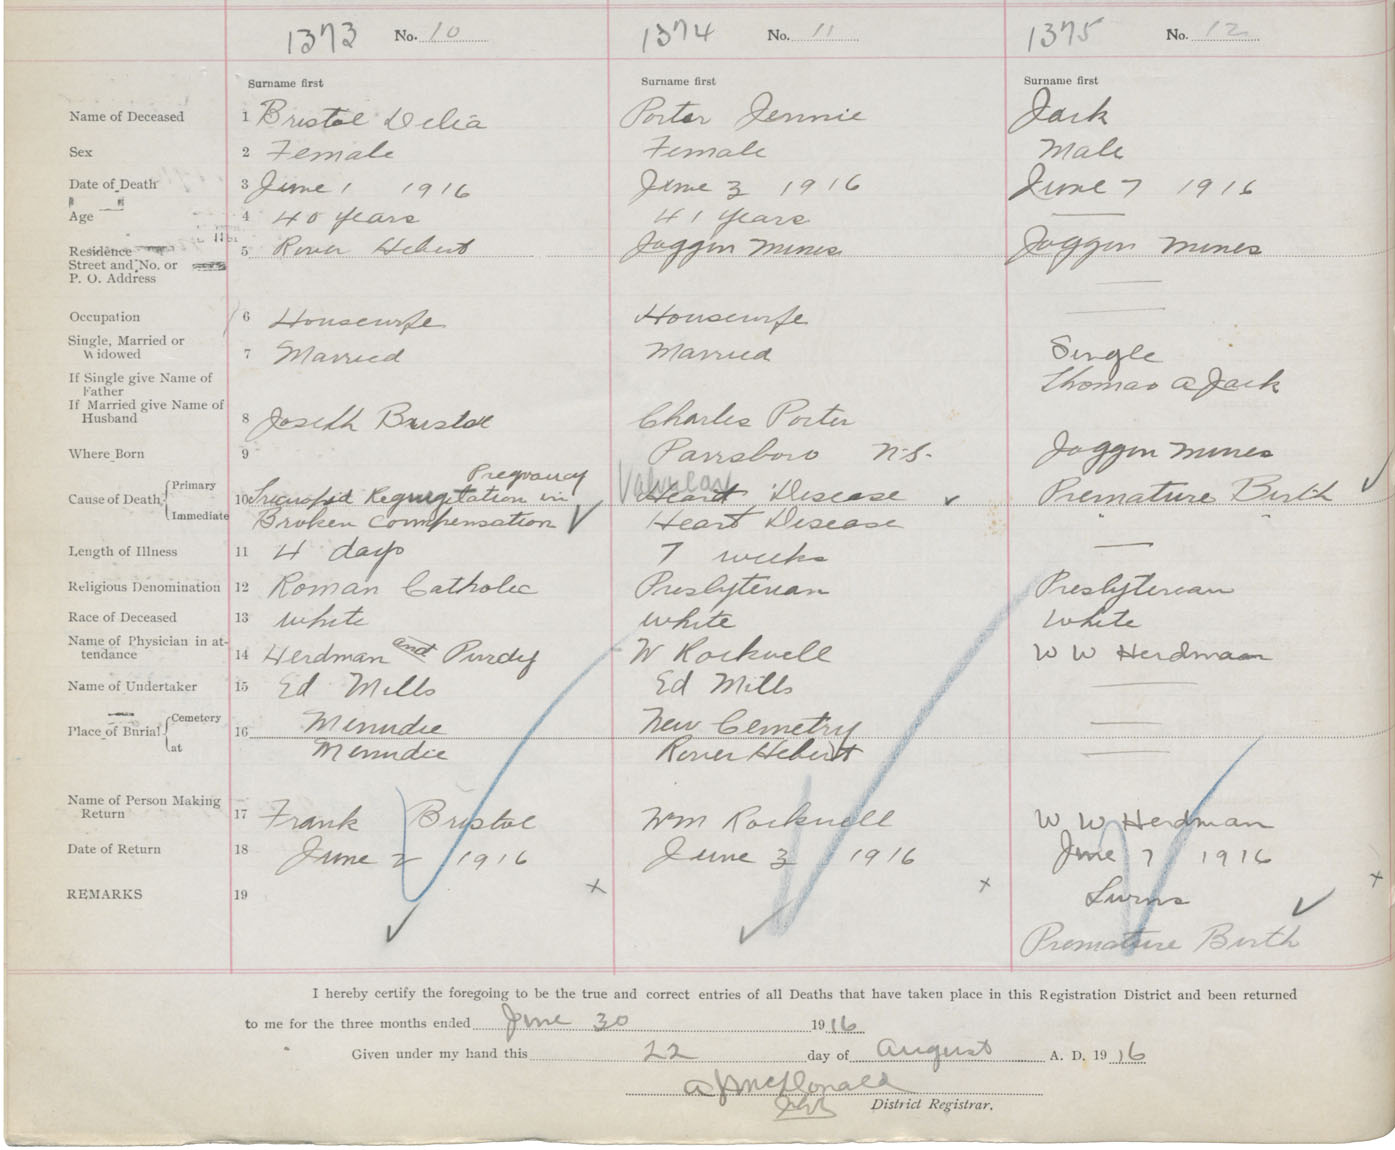 1373 No. 10 1374 No. 11 1375 No. 12
Surname first Surname first Surname first
Name of Deceased 1 Bristol Delia Porter Jennie Jack
Sex 2 Female Female Male
Date of Death 3 June 1 1916 June 3 1916 June 7 1916
Age 4 40 years 41 years —
Residence 5 River Hebert Joggin Mines Joggin Mines
Street and No. or
P. O. Address —
Occupation 6 Housewife Housewife —
Single, Married or
Widowed 7 Married Married Single
If Single give Name of
Father Thomas A Jack
If Married give Name of
Husband 8 Joseph Bristol Charles Porter
Where Born 9 Parrsboro N.S. Joggin Mines
Cause of Death Primary 10 Pregnancy
Tricuspid Regurgitation in Valvular Heart Disease Premature Birth
Immediate Broken Compensation Heart Disease "
Length of Illness 11 4 days 7 weeks —
Religious Denomination 12 Roman Catholic Presbyterian Presbyterian
Race of Deceased 13 White White White
Name of Physician in at-
tendance 14 Herdman and Purdy W Rockwell W W Herdman
Name of Undertaker 15 Ed Mills Ed Mills —
Place of Burial Cemetery 16 Menudie New Cemetry —
at Menudie River Hebert —
Name of Person Making
Return 17 Frank Bristol Wm Rockwell W W Herdman
Date of Return 18 June 2 1916 June 3 1916 June 7 1916
REMARKS 19 x x x
Premature Birth
I hereby certify the foregoing to be the true and correct entries of all Deaths that have taken place in this Registration District and been returned
to me for the three months ended June 30 1916
Given under my hand this 22 day of August A. D. 1916
A J McDonald
District Registrar.